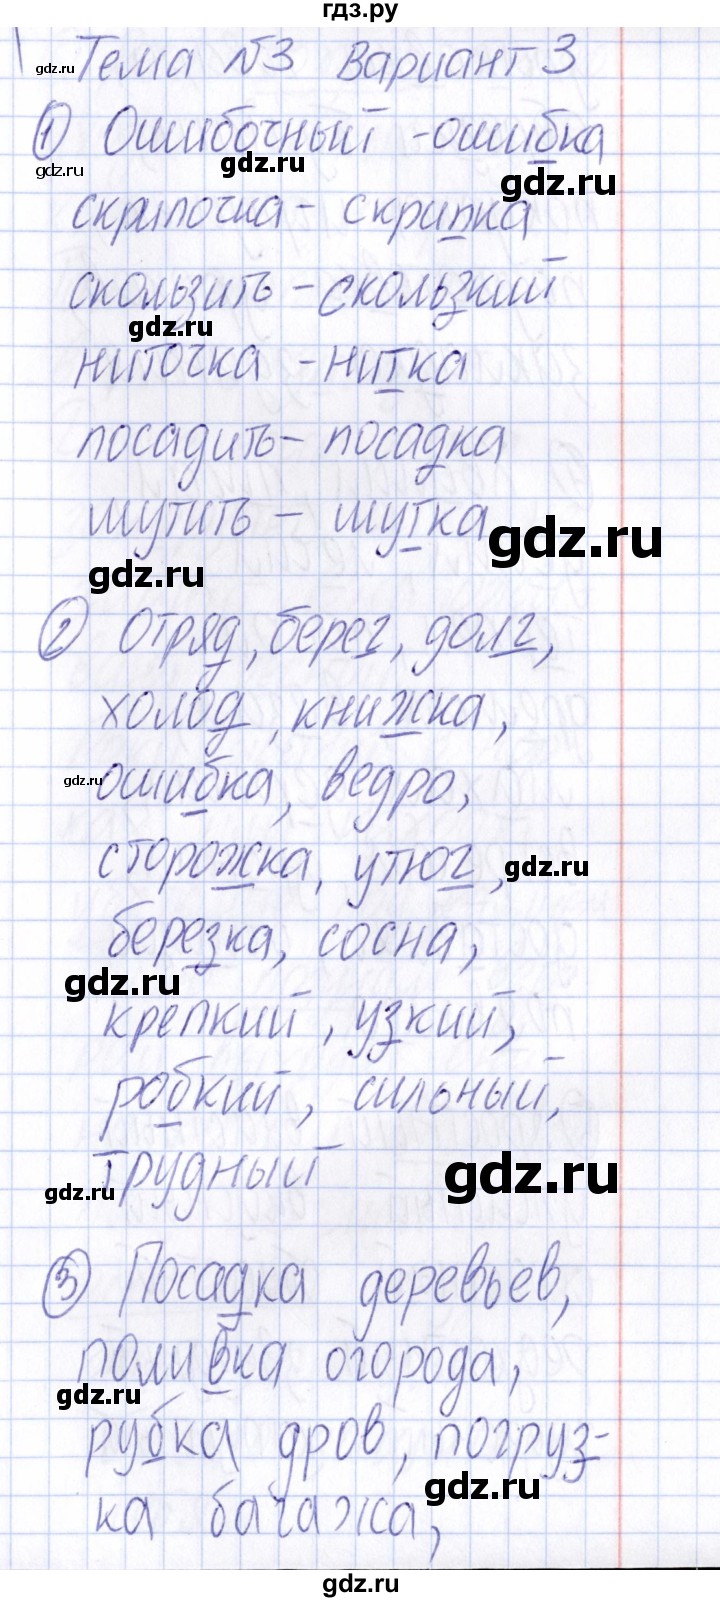 гдз.ру
Тема №3 Вариант 3
gdz.ru
① Ошибочный - ошибка
gdz.ru
gdz.ru
gdz.ru
скрипочка - скрипка
скользить - скользкий
gdz.ru
ниточка - нитка
посадить - посадка
шутить - шутка
gdz.ru
gdz.ru
② Отряд, берег, долг,
холод, книжка,
gdz.ru
ошибка, ведро,
сторожка, утюг,
gdz.ru
березка, сосна,
gdz.ru
крепкий, узкий,
робкий, сильный,
трудный
gdz.ru
gdz.ru
③ Посадка деревьев,
поливка огорода,
gdz.ru
рубка дров, погруз-
gdz.ru
ка багажа,
gdz.ru